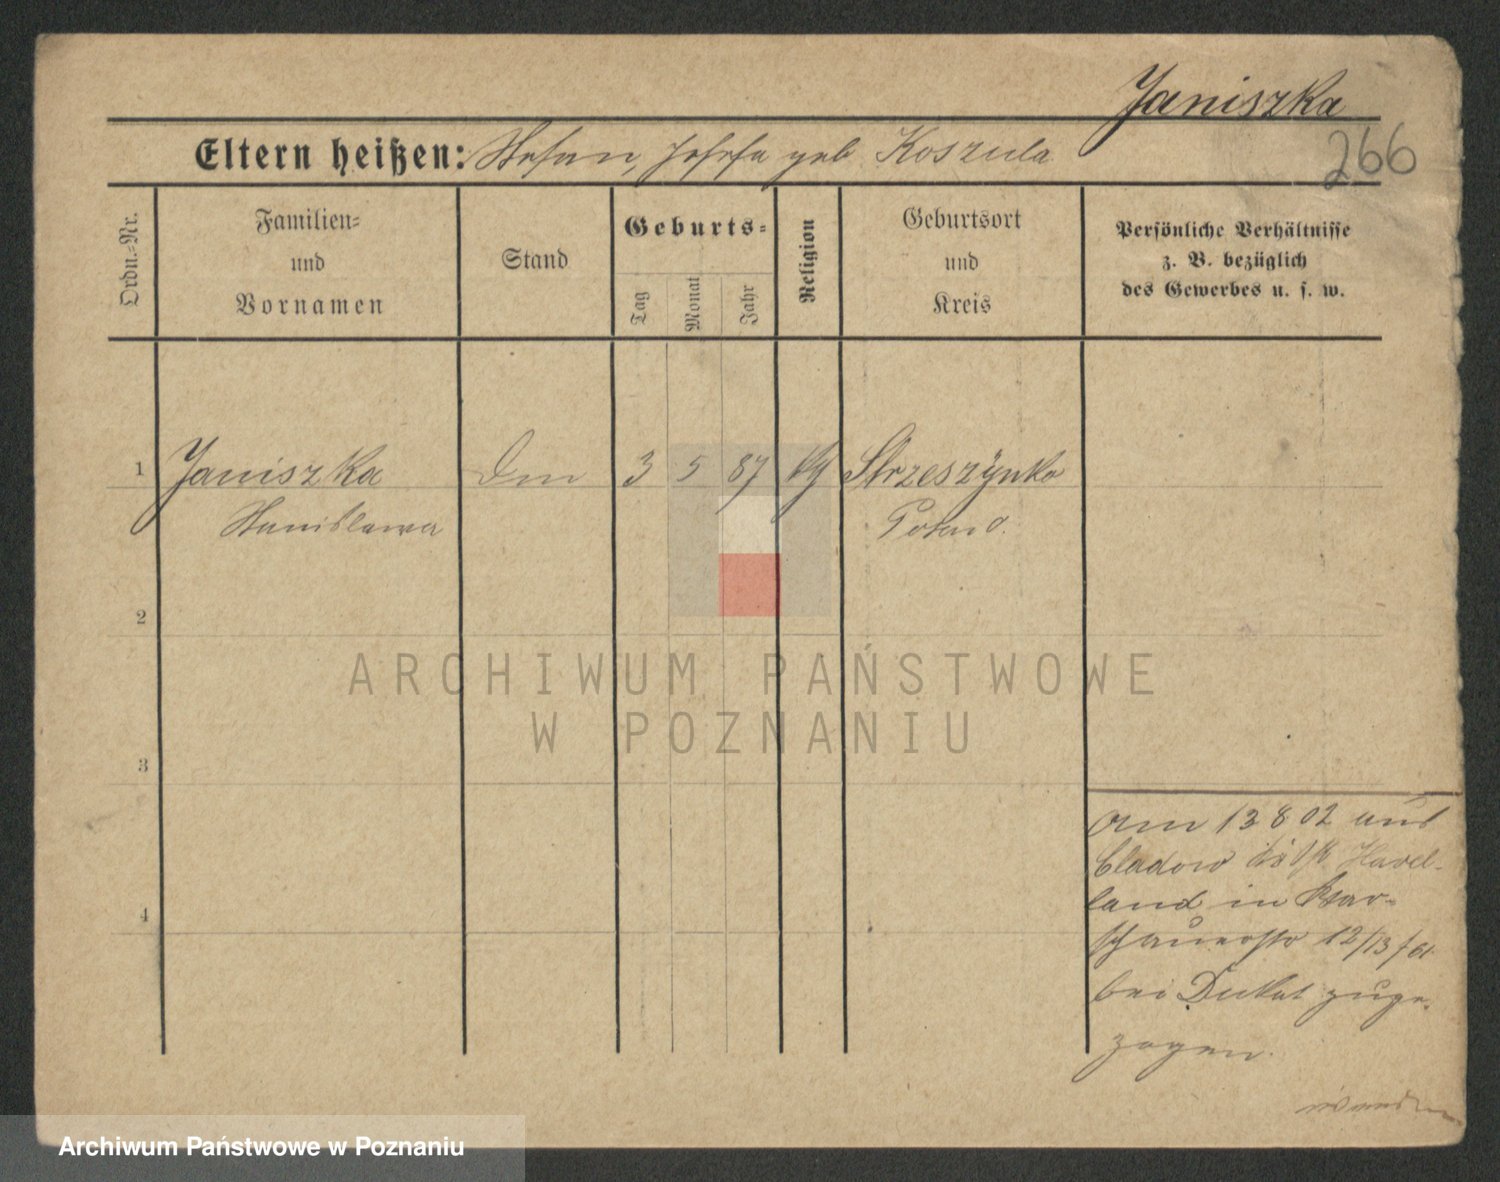 Janiszka
266
Eltern heißen: Stefan, Josefa geb Koszula
Ordn.-Nr.
Familien-
und
Vornamen
Stand
Geburts-
Tag
Monat
Jahr
Religion
Geburtsort
und
Kreis
Persönliche Verhältnisse
z. B. bezüglich
des Gewerbes u. s. w.
1 Janiszka 3 5 87 Strzeszynko
Stanislawa Posen O.
2
3
4
ARCHIWUM PAŃSTWOWE
W POZNANIU
am 13 8 02 aus
Cladow Havel-
land in War-
schauerstr 12/13
bei Dukat zuge-
zogen.
Archiwum Państwowe w Poznaniu